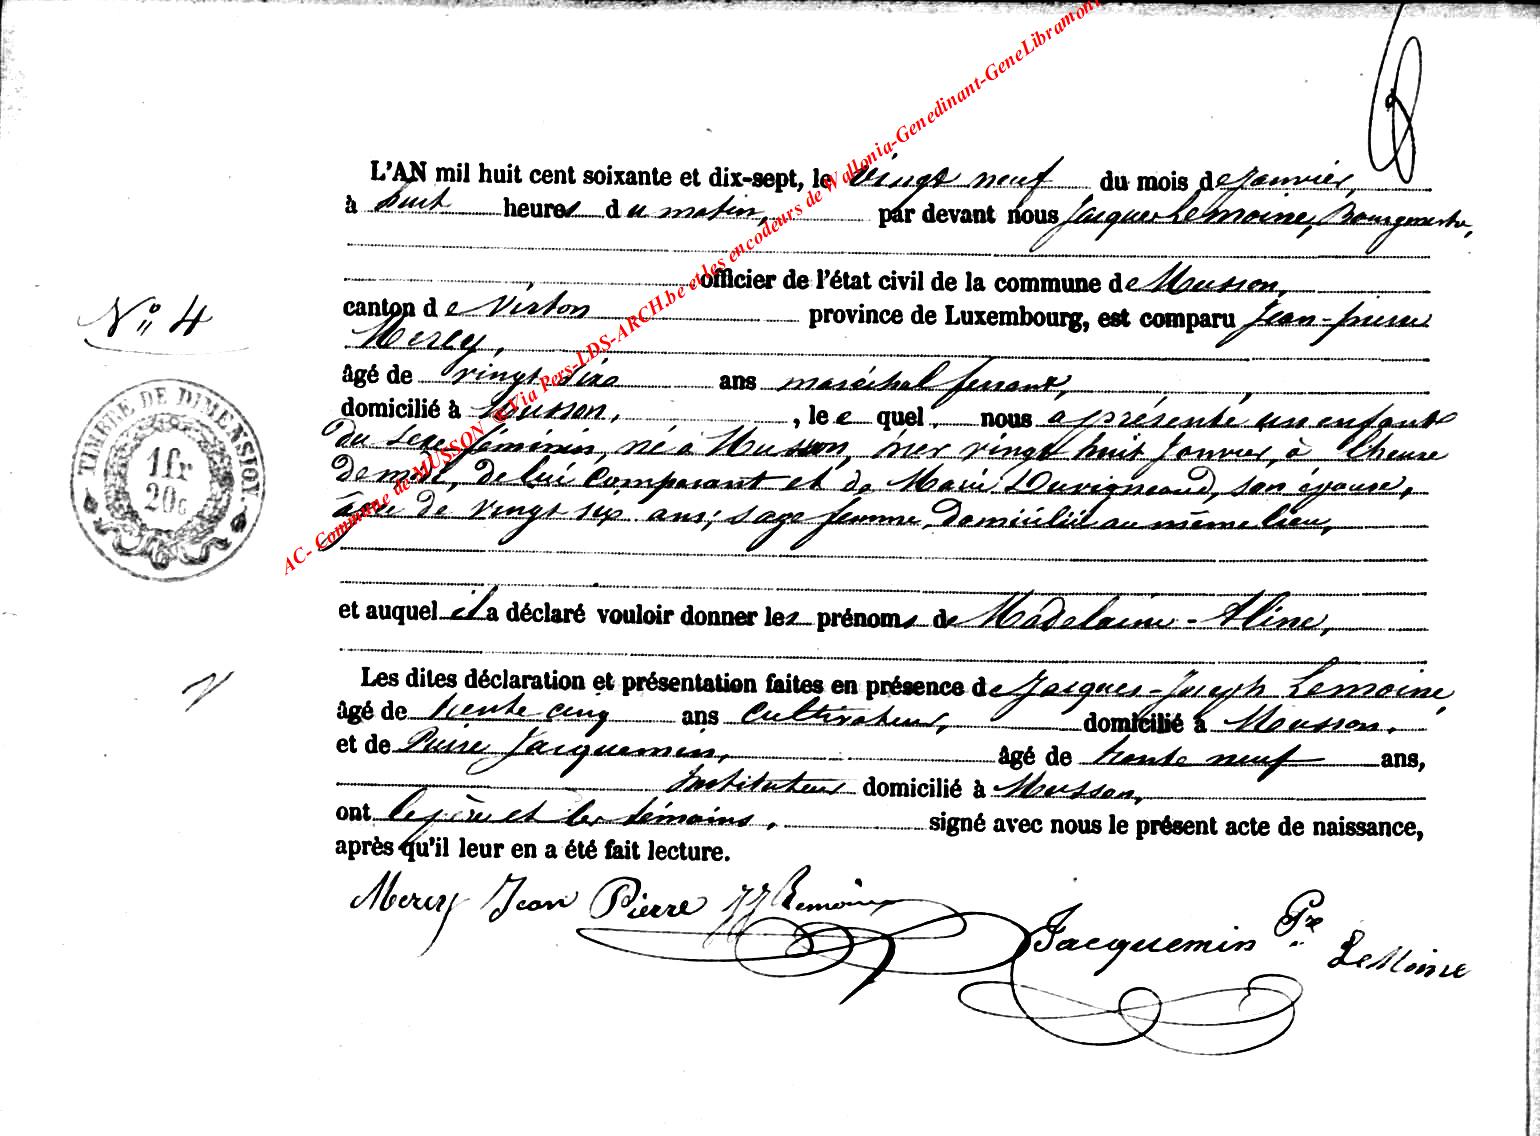 L'AN mil huit cent soixante et dix-sept, le vingt neuf du mois de Janvier,
à huit heures du matin, par devant nous Jacques Lemoine, Bourgmestre,
officier de l'état civil de la commune de Musson,
canton de Virton province de Luxembourg, est comparu Jean-pierre
Mercy,
âgé de vingt six ans maréchal ferrant,
domicilié à Musson, , lequel nous a présenté un enfant
du sexe féminin, né à Musson, hier vingt huit Janvier, à l'heure
de midi, de lui comparant et de Marie Duvigneaud, son épouse,
âgée de vingt six ans; sage femme, domiciliée au même lieu,
et auquel il a déclaré vouloir donner les prénoms de Madelaine-Aline,
Les dites déclaration et présentation faites en présence de Jacques-Joseph Lemoine,
âgé de trente cinq ans cultivateur, domicilié à Musson,
et de Pierre Jacquemin, âgé de trente neuf ans,
Instituteur domicilié à Musson,
ont le père et les témoins, signé avec nous le présent acte de naissance,
après qu'il leur en a été fait lecture.
Mercy Jean Pierre JJ Lemoine
Jacquemin Pre
LeMoine
No 4
TIMBRE DE DIMENSION
1fr
20c
AC- Commune de MUSSON © Via Pers-LDS-ARCH.be et les encodeurs de Wallonia-Genedinant-GeneLibramont